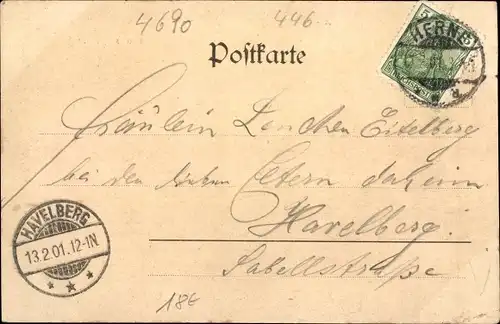 4690 446.-
Postkarte
5
HERNE
Fräulein Lenchen Eitelberg
bei den lieben Eltern daheim
Havelberg.
HAVELBERG
13.2.01.12-1N
Sabellstraße
18€